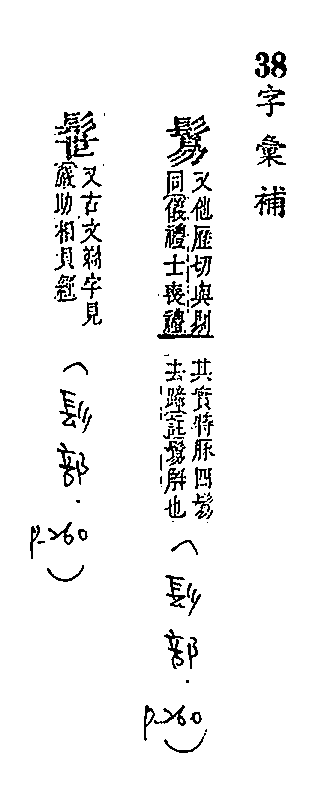 38字彙補
鬄
又他歷切與剔
同儀禮士喪禮
其實特豚四鬄
去蹄註鬄解也
(髟部.
p-260)
髢
又古文
字見
嚴助相貝經
(髟部.
p-260)